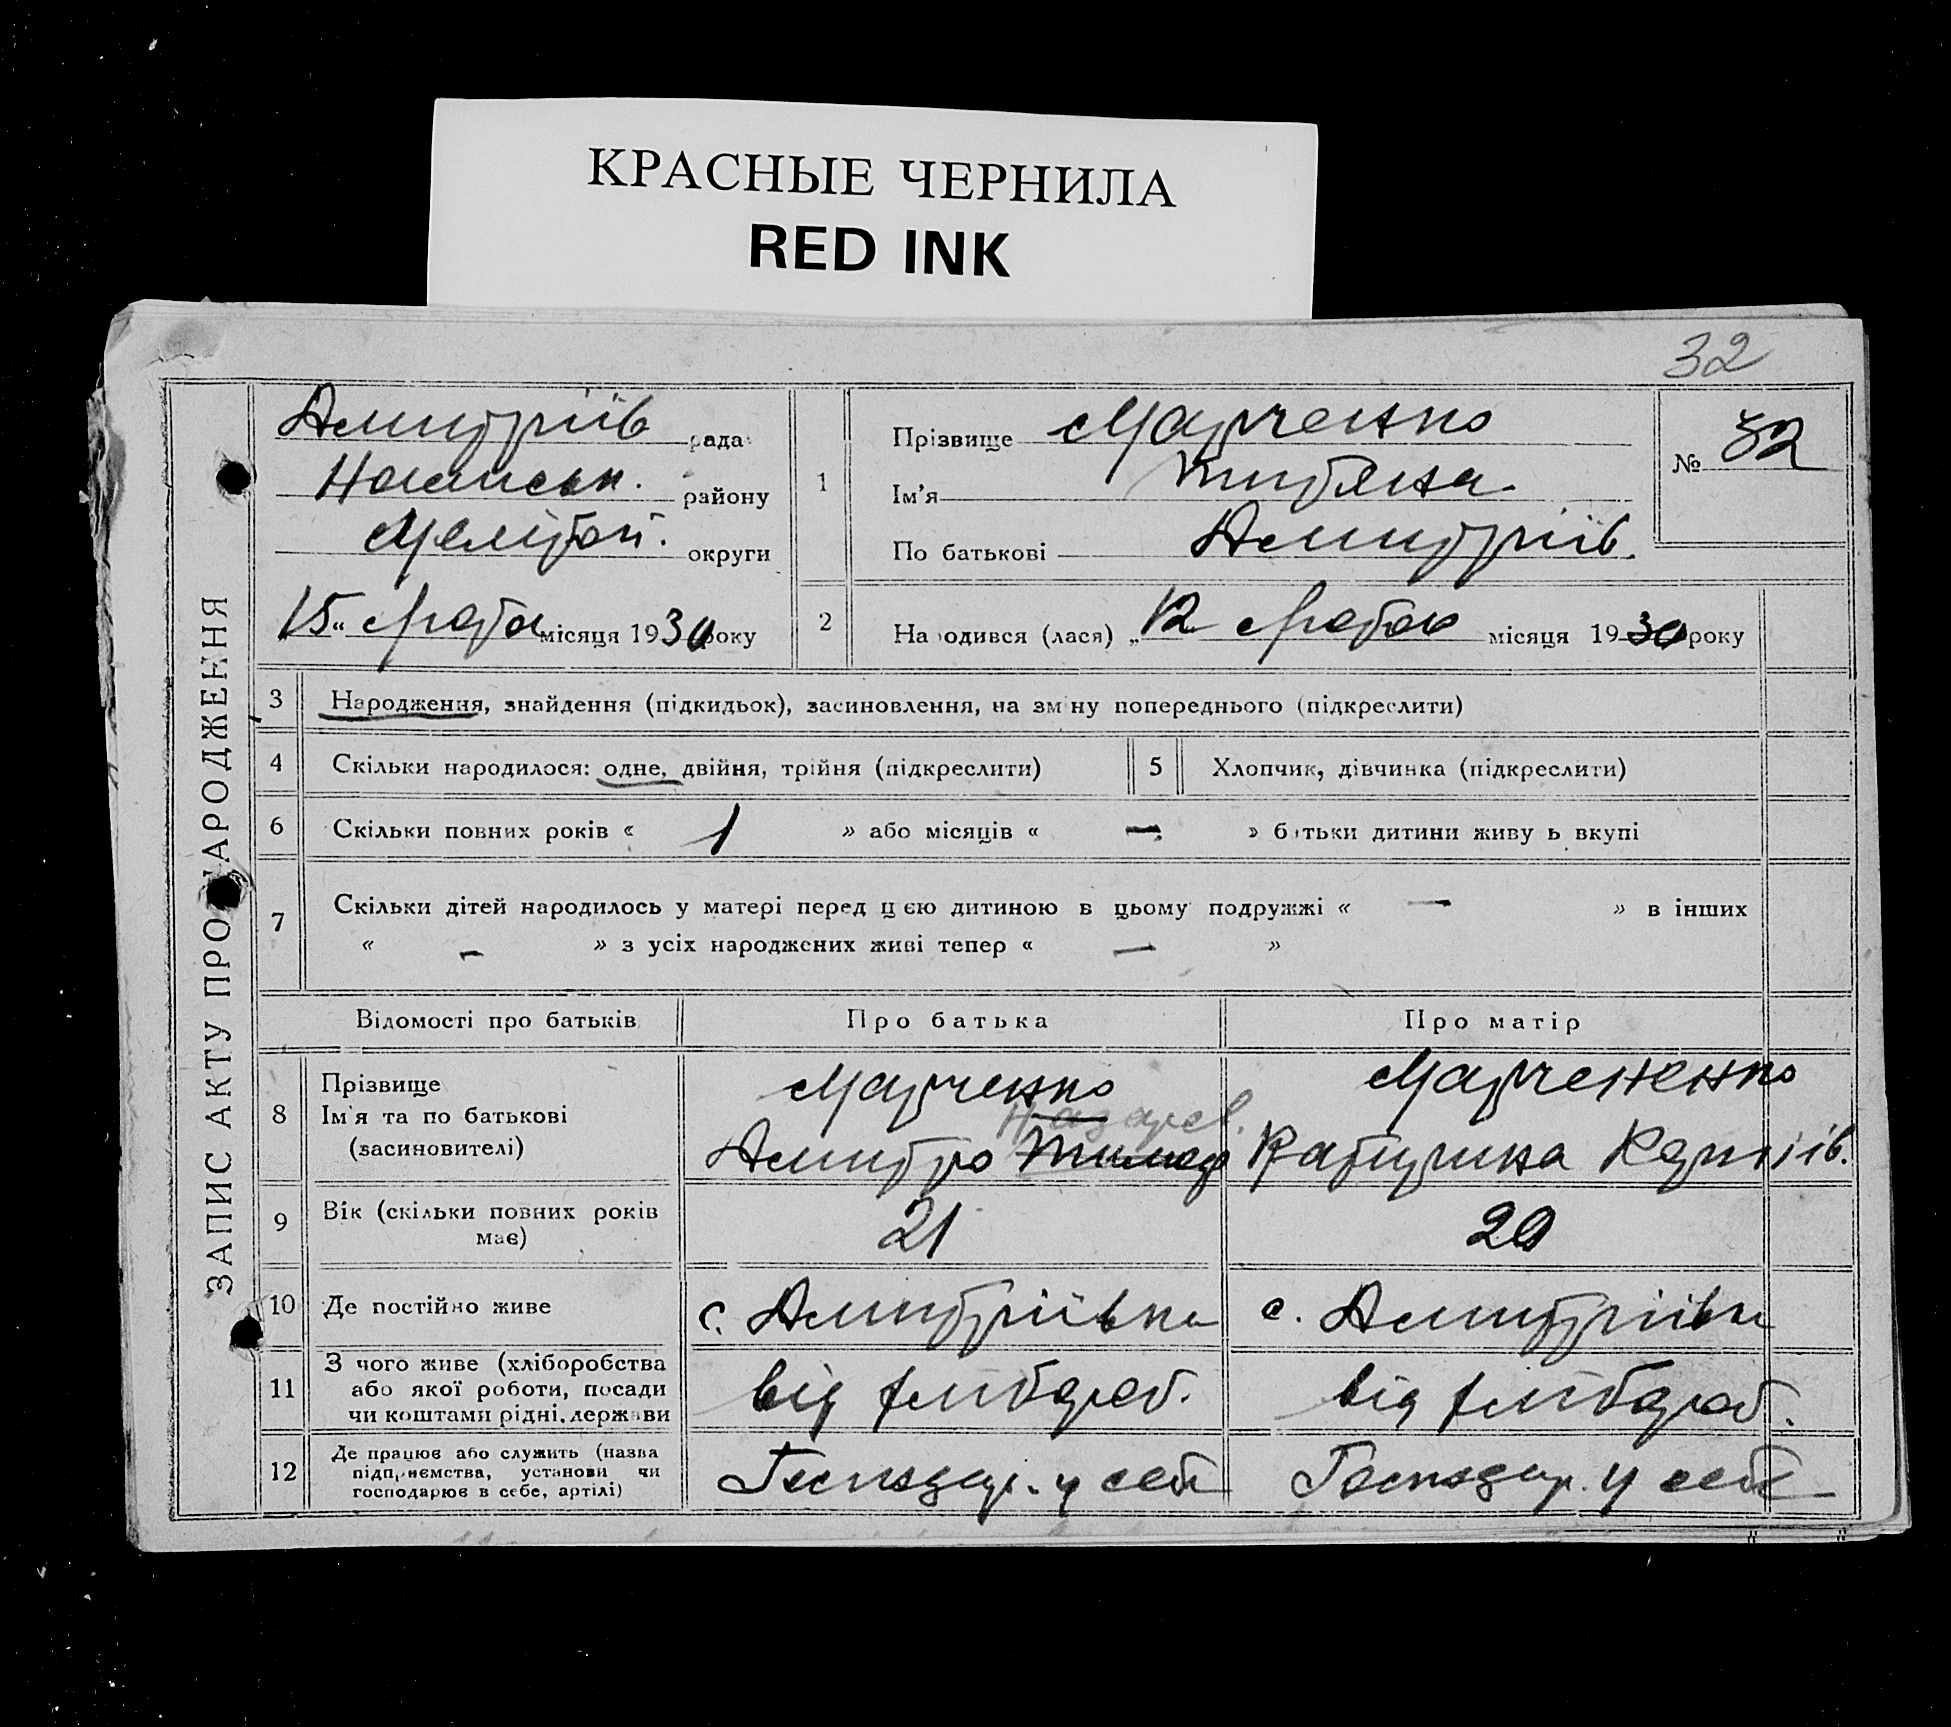 КРАСНЫЕ ЧЕРНИЛА
RED INK
32
ЗАПИС АКТУ ПРО НАРОДЖЕННЯ
Дмитріїв рада
району
Мелітоп. округи
15 „ місяця 1930 року
1
Прізвище Марченко
Ім'я Титяна
По батькові Дмитріїв.
№ 32
2
Народився (лася) „12 місяця 1930 року
3 Народження, знайдення (підкидьок), засиновлення, на зміну попереднього (підкреслити)
4 Скільки народилося: одне, двійня, трійня (підкреслити)
5 Хлопчик, дівчинка (підкреслити)
6 Скільки повних років « 1 » або місяців « — » батьки дитини живуть вкупі
7 Скільки дітей народилось у матері перед цією дитиною в цьому подружжі « — » в інших
« — » з усіх народжених живі тепер « — »
Відомості про батьків Про батька Про матір
8 Прізвище
Ім'я та по батькові
(засиновителі)
Марченко
Назаров.
Дмитро
Марченко
Катирина
9 Вік (скільки повних років
має)
21
20
10 Де постійно живе с. Дмитріївка с. Дмитріївка
11 З чого живе (хліборобства
або якої роботи, посади
чи коштами рідні, держави
від хлібороб.
від хлібороб.
12 Де працює або служить (назва
підприємства, установи чи
господарює в себе, артілі)
Господар. у себе
Господар. у себе